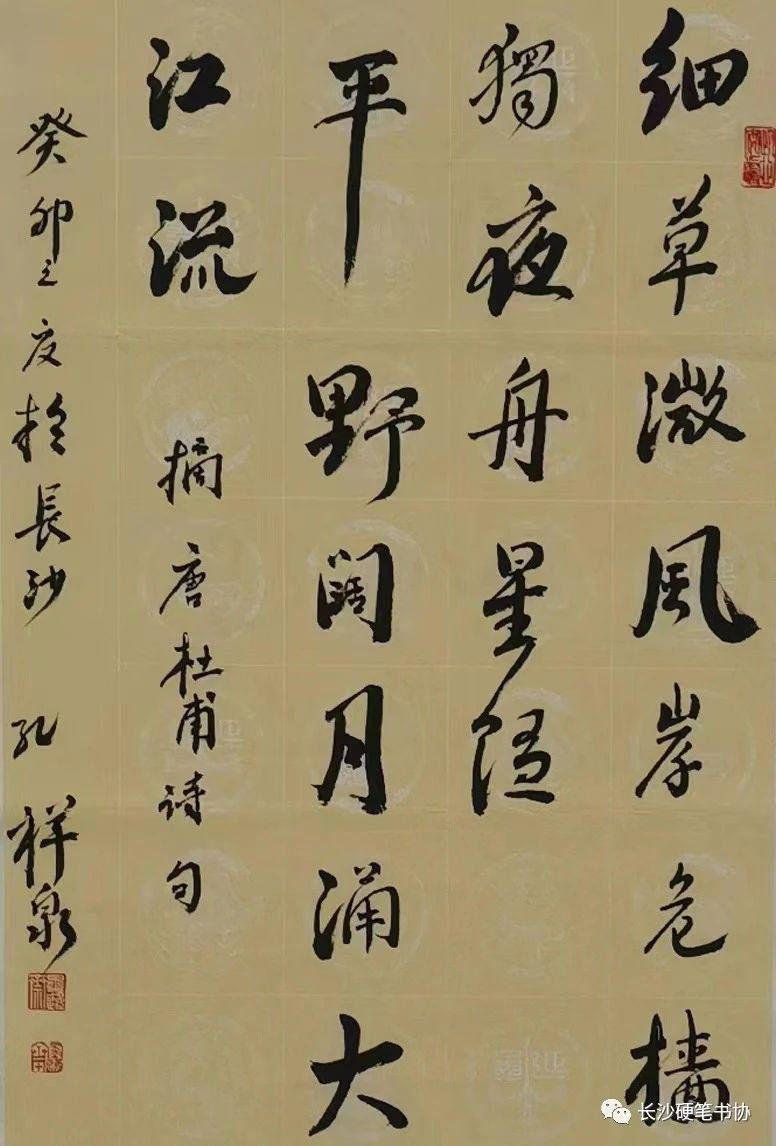 細草微風岸危檣
獨夜舟星随
平野闊月涌大
江流
摘唐杜甫詩句
癸卯之夏於長沙 孔祥泉
长沙硬笔书协